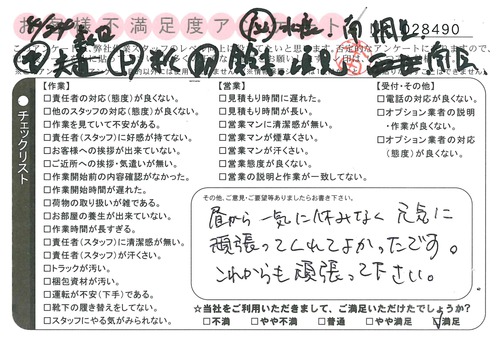 お客様不満足度アンケート
028490
チェックリスト
【作業】
□責任者の対応(態度)が良くない。
□他のスタッフの対応(態度)が良くない。
□作業を見ていて不安がある。
□責任者(スタッフ)に好感が持てない。
□お客様への挨拶が出来ていない。
□ご近所への挨拶・気遣いが無い。
□作業開始前の内容確認がなかった。
□作業開始時間が遅れた。
□荷物の取り扱いが雑である。
□お部屋の養生が出来ていない。
□作業時間が長すぎる。
□責任者(スタッフ)に清潔感が無い。
□責任者(スタッフ)が汗くさい。
□トラックが汚い。
□梱包資材が汚い。
□運転が不安(下手)である。
□靴下の履き替えをしてない。
□スタッフにやる気がみられない。
【営業】
□見積もり時間に遅れた。
□見積もり時間が長い。
□営業マンに清潔感が無い。
□営業マンが煙草くさい。
□営業マンが汗くさい。
□営業態度が良くない。
□営業の説明と作業が一致してない。
【受付・その他】
□電話の対応が良くない。
□オプション業者の説明
・作業が良くない。
□オプション業者の対応
(態度)が良くない。
その他、ご意見・ご要望等ありましたらお書き下さい。
昼から一気に休みなく元気に
頑張ってくれてよかったです。
これからも頑張って下さい。
☆当社をご利用いただきまして、ご満足いただけたでしょうか?
□不満 □やや不満 □普通 □やや満足 ☑満足